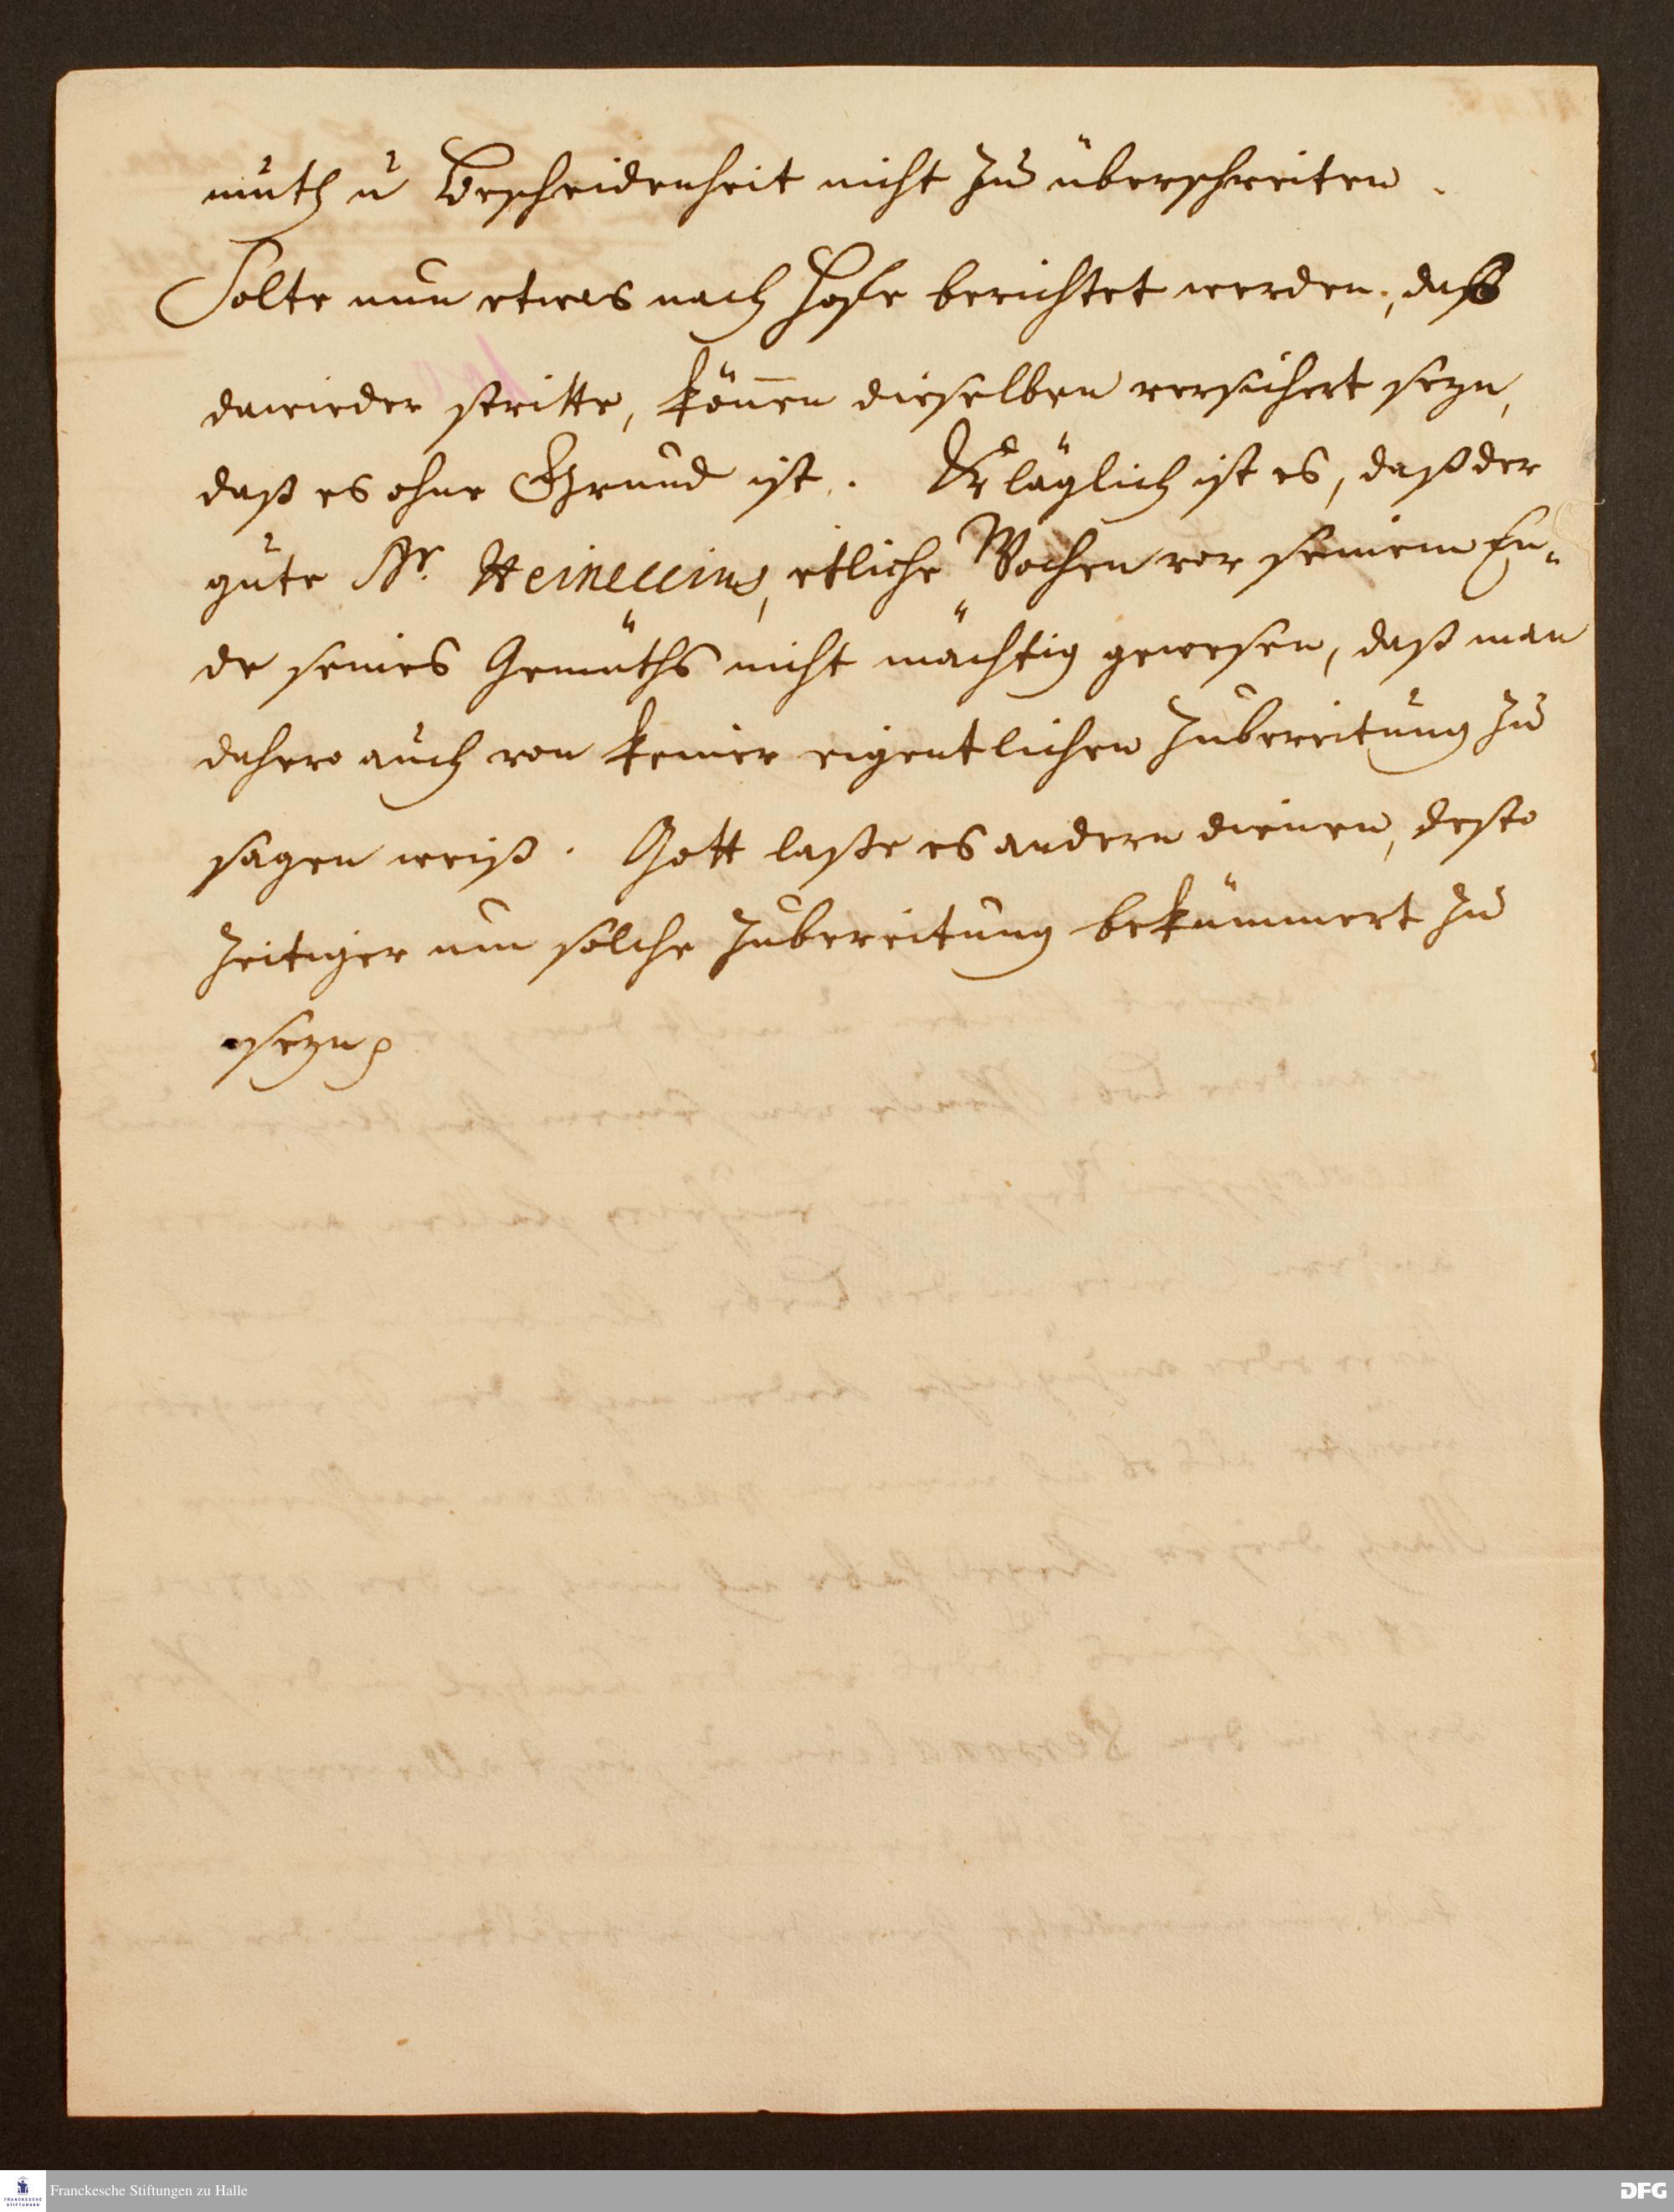 muth u Bescheidenheit nicht zu überschreiten.
Solte nun etwas nach Hofe berichtet werden, daß
dawieder stritte, können dieselben versichert seyn,
daß es ohne Grund ist. Kläglich ist es, daß der
gute Hr. Heineccius, etliche Wochen vor seinem En-
de seines Gemüths nicht mächtig gewesen, daß man
dahero auch von keiner eigentlichen Zubereitung zu
sagen weiß. Gott laße es andern dienen, desto
zeitiger um solche Zubereitung bekümmert zu
seyn
Franckesche Stiftungen zu Halle
FRANCKESCHE
STIFTUNGEN
DFG